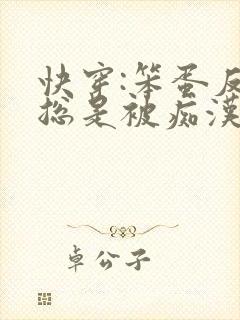 快穿:笨蛋反
总是被痴漢
卓公子